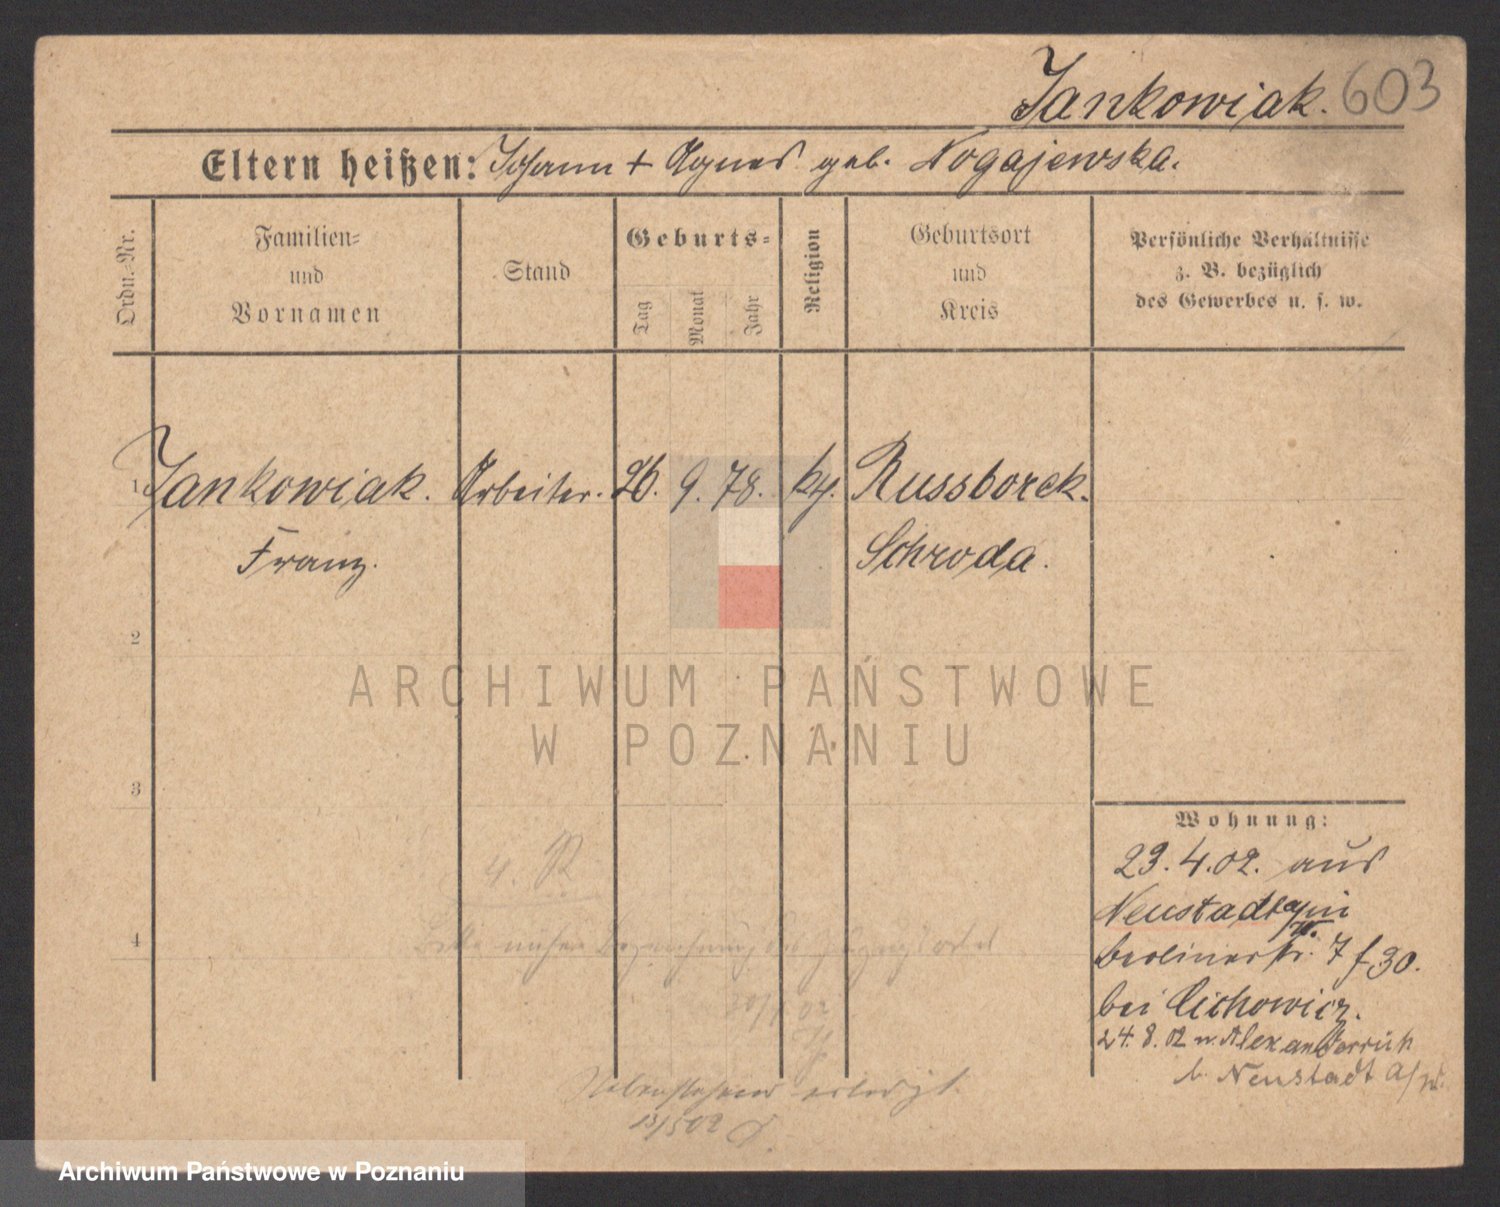 Jankowiak. 603
Eltern heißen: Johann + Agnes geb. Nogajewska.
Ordn.-Nr.
Familien-
und
Vornamen
Stand
Geburts-
Tag
Monat
Jahr
Religion
Geburtsort
und
Kreis
Persönliche Verhältnisse
z. B. bezüglich
des Gewerbes u. s. w.
1 Jankowiak. Arbeiter. 26. 9. 78. kg. Russborek.
Franz. Schroda.
2
ARCHIWUM PAŃSTWOWE
W POZNANIU
3
Wohnung:
23.4.02. aus
Neustadt
4
Berlinerstr. 7 f 30.
bei Cichowicz.
24.8.02 n. Alexanderruh
b. Neustadt a/W.
Nebenstehend erledigt
13/5 02
Archiwum Państwowe w Poznaniu